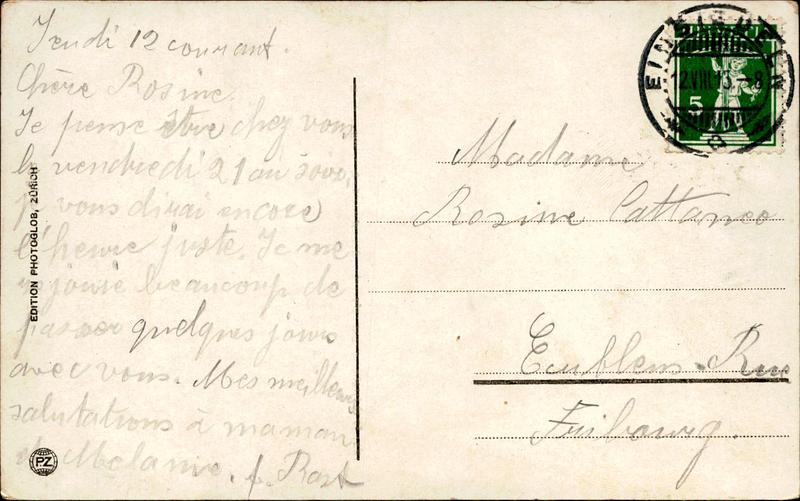 Jeudi 12 courant.
Chère Rosine.
Je pense être chez vous
le vendredi 21 au soir,
je vous dirai encore
l'heure juste. Je me
rejouie beaucoup de
passer quelques jours
avec vous. Mes meilleures
salutations à maman
et Melanie. f. Rast
EDITION PHOTOGLOB, ZÜRICH
PZ
EINSIEDELN
12.VIII.13.-8
5
Madame
Rosine Cattaneo
Rue
Fribourg.